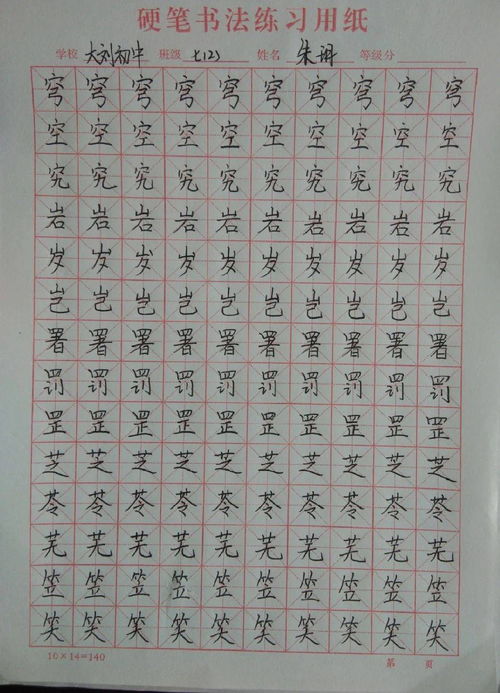 硬笔书法练习用纸
学校 大刘初中 班级 七(2) 姓名 朱珊 等级分
穹 穹 穹 穹 穹 穹 穹 穹 穹 穹
空 空 空 空 空 空 空 空 空 空
究 究 究 究 究 究 究 究 究 究
岩 岩 岩 岩 岩 岩 岩 岩 岩 岩
岁 岁 岁 岁 岁 岁 岁 岁 岁 岁
岂 岂 岂 岂 岂 岂 岂 岂 岂 岂
署 署 署 署 署 署 署 署 署 署
罚 罚 罚 罚 罚 罚 罚 罚 罚 罚
罡 罡 罡 罡 罡 罡 罡 罡 罡 罡
芝 芝 芝 芝 芝 芝 芝 芝 芝 芝
苓 苓 苓 苓 苓 苓 苓 苓 苓 苓
芜 芜 芜 芜 芜 芜 芜 芜 芜 芜
笠 笠 笠 笠 笠 笠 笠 笠 笠 笠
笑 笑 笑 笑 笑 笑 笑 笑 笑 笑
10×14=140 第 页